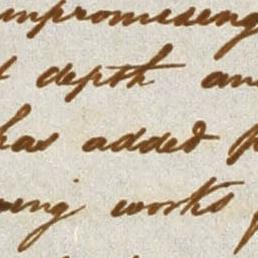 unpromising
depth an
has added
works